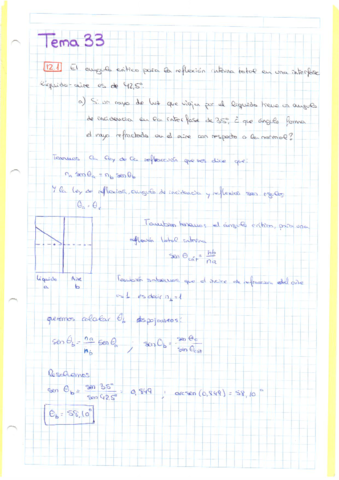 Tema 33
12.1 El angulo critico para la reflexión interna total en una interfase
liquido-aire es de 42,5°.
a) Si un rayo de luz que viaja por el liquido tiene un angulo
de incidencia en la interfase de 35°. ¿ que angulo forma
el rayo refractado en el aire con respecto a la normal?
Tenemos la ley de la refracción que nos dice que:
na senθa = nb senθb
Y la ley de reflexión, angulo de incidencia y reflexión son iguales
θi = θr
Tambien tenemos el angulo critico, para una
reflexión total interna
sen θcrit = nb/na
liquido Aire
a b
También sabemos que el indice de refracción del aire
n=1 es decir nb=1
queremos calcular θb despejamos:
sen θb = na/nb sen θa , sen θb = sen θa/sen θcrit
Resolvemos
sen θb = sen 35°/sen 42,5° = 0,849 ; arcsen (0,849) = 58,10°
θb = 58,10°